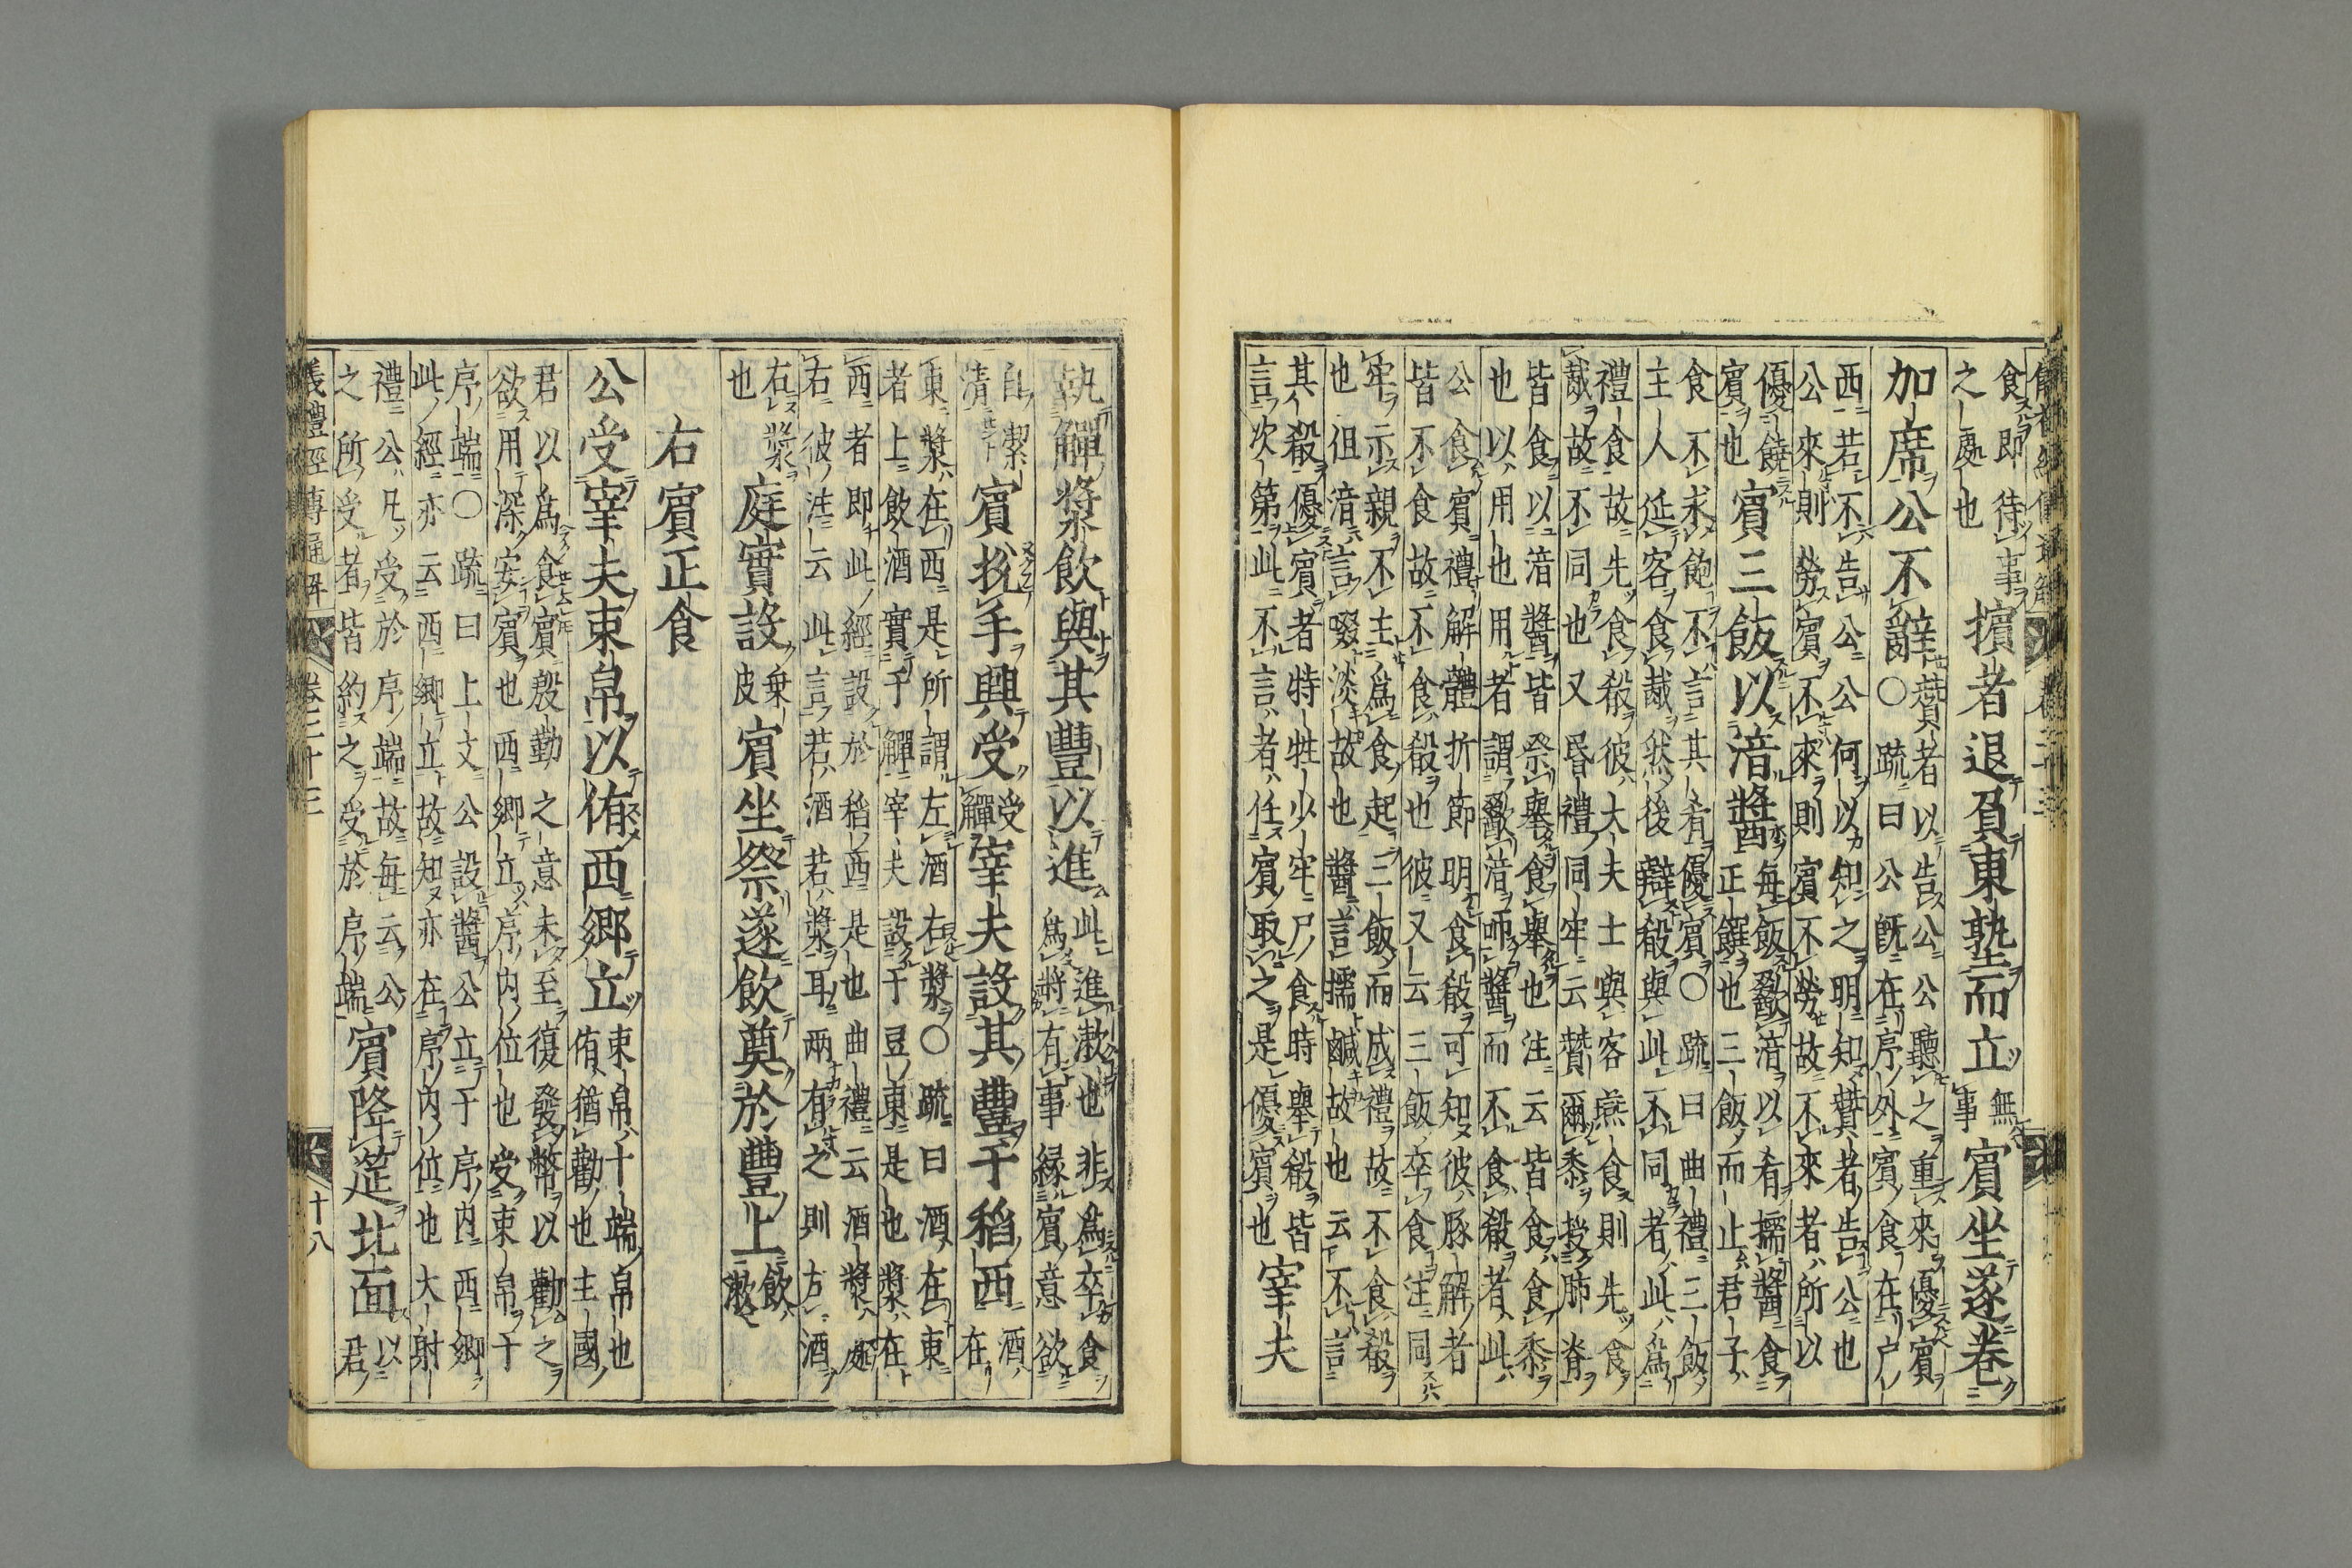 食即待事
之處也
擯者退負東塾而立
無
事
賓坐遂卷
加席公不辭
贊者以告公公聽之重來優賓
○疏曰公既在序外賓食在户
西若不告公公何以知之明知贊者告公也
公來則勞賓不來則賓不勞故不來者所以
優饒
賓也
賓三飯以湆醬
每飯歠湆以肴擩醬食
正饌也三飯而止君子
食不求飽不言其肴優賓○疏曰曲禮三飯
主人延客食胾然後辯殽與此不同者此爲
禮食故先食殽彼大夫士與客燕食則先食
胾故不同也又昬禮同牢云贊爾黍授肺脊
皆食以湆醬皆祭舉食舉也注云皆食食黍
也以用也用者謂歠湆咂醬而不食殽者此
公食賓禮解體折節明食殽可知彼豚解者
皆不食故不食殽也彼又云三飯卒食注同
牢示親不主爲食起三飯而成禮故不食殽
也但湆言啜淡故也醬言擩鹹故也云不言
其殽優賓者特牲少牢尸食時舉殽皆
言次第此不言者任賓取之是優賓也
宰夫
執觶漿飲與其豐以進
此進漱也非爲卒食
爲將有事緣賓意欲
自潔
清
賓挩手興受
受
觶
宰夫設其豐于稻西
酒
在
東漿在西是所謂左酒右漿○疏曰酒在東
者上飲酒實于觶宰夫設于豆東是也漿在
西者即此經設於稻西是也曲禮云酒漿處
右彼注云此言若酒若漿耳兩有之則左酒
右漿
也
庭實設
乗
皮
賓坐祭遂飲奠於豐上
飲
漱
右賓正食
公受宰夫束帛以侑西鄉立
束帛十端帛也
侑猶勸也主國
君以爲食賓殷勤之意未至復發幣以勸之
欲用深安賓也西鄉立序内位也受束帛于
序端○疏曰上文公設醬公立于序内西鄉
此經亦云西鄉立故知亦在序内位也大射
禮公凡受於序端故每云公
之所受者皆約之受於序端
賓降筵北面
以
君
儀禮經傳通解 卷二十三 十八